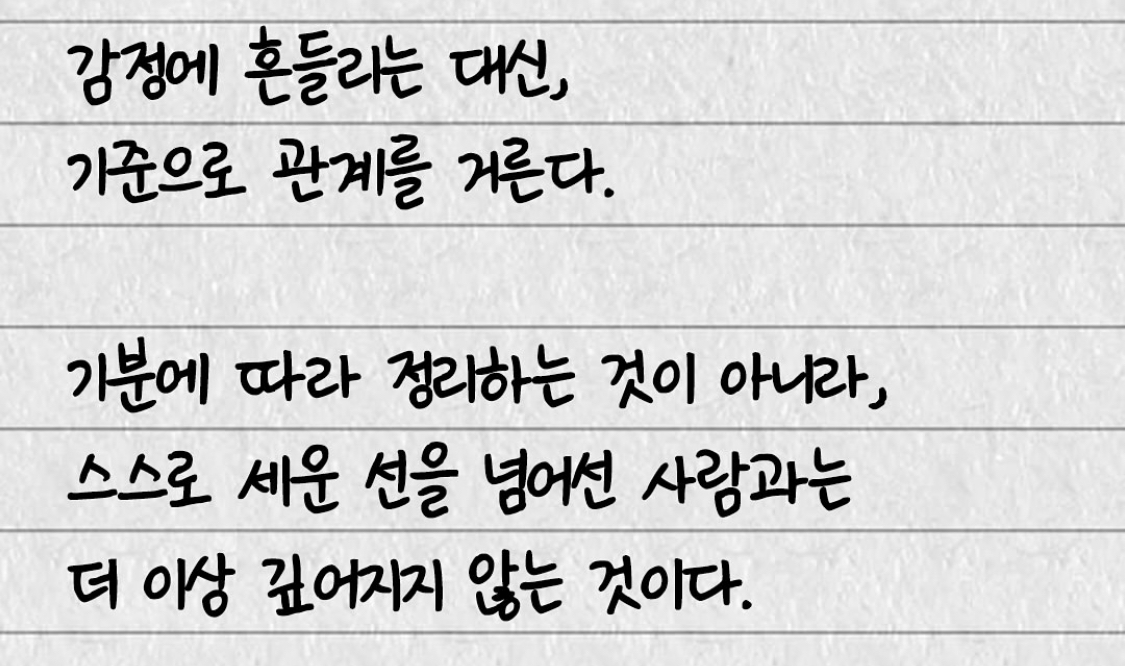 감정에 흔들리는 대신,
기준으로 관계를 거른다.
기분에 따라 정리하는 것이 아니라,
스스로 세운 선을 넘어선 사람과는
더 이상 깊어지지 않는 것이다.